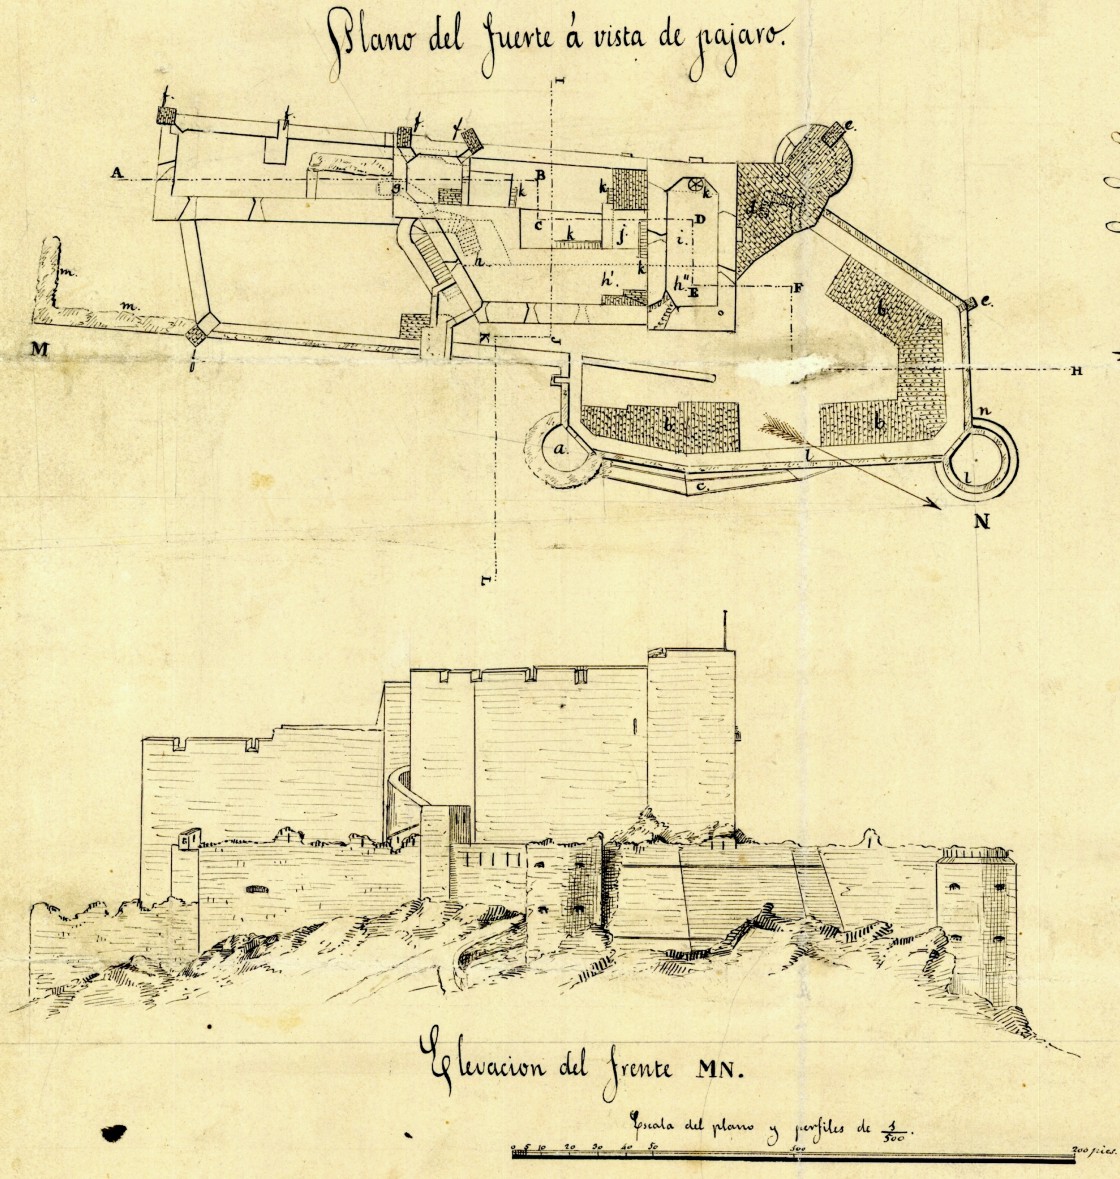 Plano del fuerte á vista de pajaro.
I
f. f. f. f. e.
A B g k k k d
C D
m. k j. i. e.
h k
h'. h'' E F b
m.
M K J H
n
b b
a. l l
c.
N
L
Elevacion del frente MN.
Escala del plano y perfiles de 1/500.
0 5 10 20 30 40 50 100 200 pies.